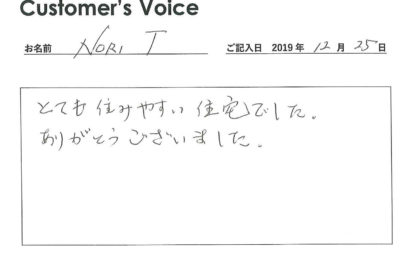 Customer's Voice
お名前 NORI T ご記入日 2019 年 12 月 25 日
とても住みやすい住宅でした。
ありがとうございました。